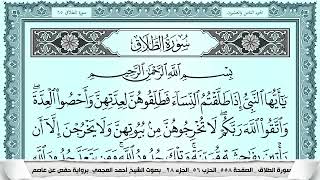 الجزء الثامن والعشرون
سورة الطلاق
سُورَةُ الطَّلَاقِ
بِسْمِ اللَّهِ الرَّحْمَٰنِ الرَّحِيمِ
يَٰٓأَيُّهَا ٱلنَّبِىُّ إِذَا طَلَّقْتُمُ ٱلنِّسَآءَ فَطَلِّقُوهُنَّ لِعِدَّتِهِنَّ وَأَحْصُوا۟ ٱلْعِدَّةَ
وَٱتَّقُوا۟ ٱللَّهَ رَبَّكُمْ لَا تُخْرِجُوهُنَّ مِنۢ بُيُوتِهِنَّ وَلَا يَخْرُجْنَ إِلَّآ أَن
سورة الطلاق الصفحة ٥٥٨ الحزب ٥٦ الجزء ٢٨ بصوت الشيخ احمد العجمي برواية حفص عن عاصم